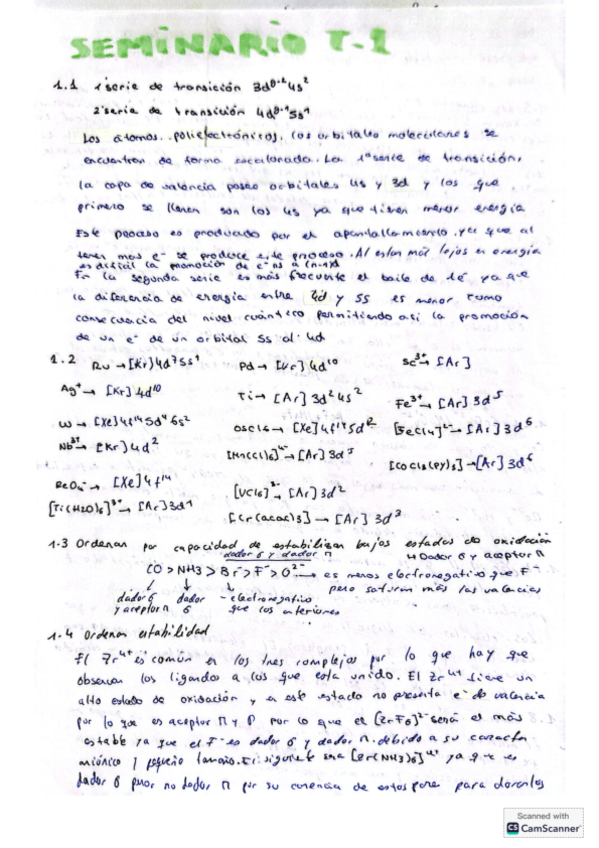 SEMINARIO T-1
1.1 1ªserie de transición 3dⁿ⁻²4s²
2ªserie de transición 4dⁿ⁻¹5s¹
Los átomos polielectrónicos, los orbitales moleculares se
encuentran de forma escalonada. La 1ªserie de transición,
la capa de valencia posee orbitales 4s y 3d y los que
primero se llenen son los 4s ya que tienen menor energía
Este proceso es producido por el apantallamiento, ya que al
tener más e⁻ se produce este proceso. Al estar más lejos en energía
es difícil la promoción de e⁻ ns a (n-1)d
En la segunda serie es más frecuente el baile de 1é ya que
la diferencia de energía entre 4d y 5s es menor como
consecuencia del nivel cuántico permitiendo así la promoción
de un e⁻ de un orbital 5s al 4d
1.2 Ru → [Kr]4d⁷5s¹ Pd → [Kr]4d¹⁰ Sc³⁺ → [Ar]
Ag⁺ → [Kr]4d¹⁰ Ti → [Ar]3d²4s² Fe³⁺ → [Ar]3d⁵
W → [Xe]4f¹⁴5d⁴6s² OsCl6 → [Xe]4f¹⁴5d² [FeCl4]²⁻ → [Ar]3d⁶
Nb³⁺ → [Kr]4d² [Mn(Cl)6]⁴⁻ → [Ar]3d⁵ [CoCl3(py)3] → [Ar]3d⁶
ReO4⁻ → [Xe]4f¹⁴ [VCl6]³⁻ → [Ar]3d²
[Ti(H2O)6]³⁺ → [Ar]3d¹ [Cr(acac)3] → [Ar]3d³
1.3 Ordenan por capacidad de estabilizar bajos estados de oxidación
dador σ y dador π
dador σ y aceptor π
CO > NH3 > Br⁻ > F⁻ > O²⁻ → es menos electronegativo que F⁻
pero saturan más las valencias
dador σ y aceptor π dador σ - electronegativo que los anteriores
1.4 Ordenan estabilidad
El Zr⁴⁺ es común en los tres complejos por lo que hay que
observar los ligandos a los que está unido. El Zr⁴⁺ tiene un
alto estado de oxidación y en este estado no presenta e⁻ de valencia
por lo que es aceptor π y por lo que el [ZrF6]²⁻ será el más
estable ya que el F⁻ es dador σ y dador π debido a su caracter
aniónico y pequeño tamaño. El siguiente sera [Zr(NH3)6]⁴⁺ ya que es
dador σ pero no dador π por su carencia de estos pares para darlos
Scanned with
CS CamScanner